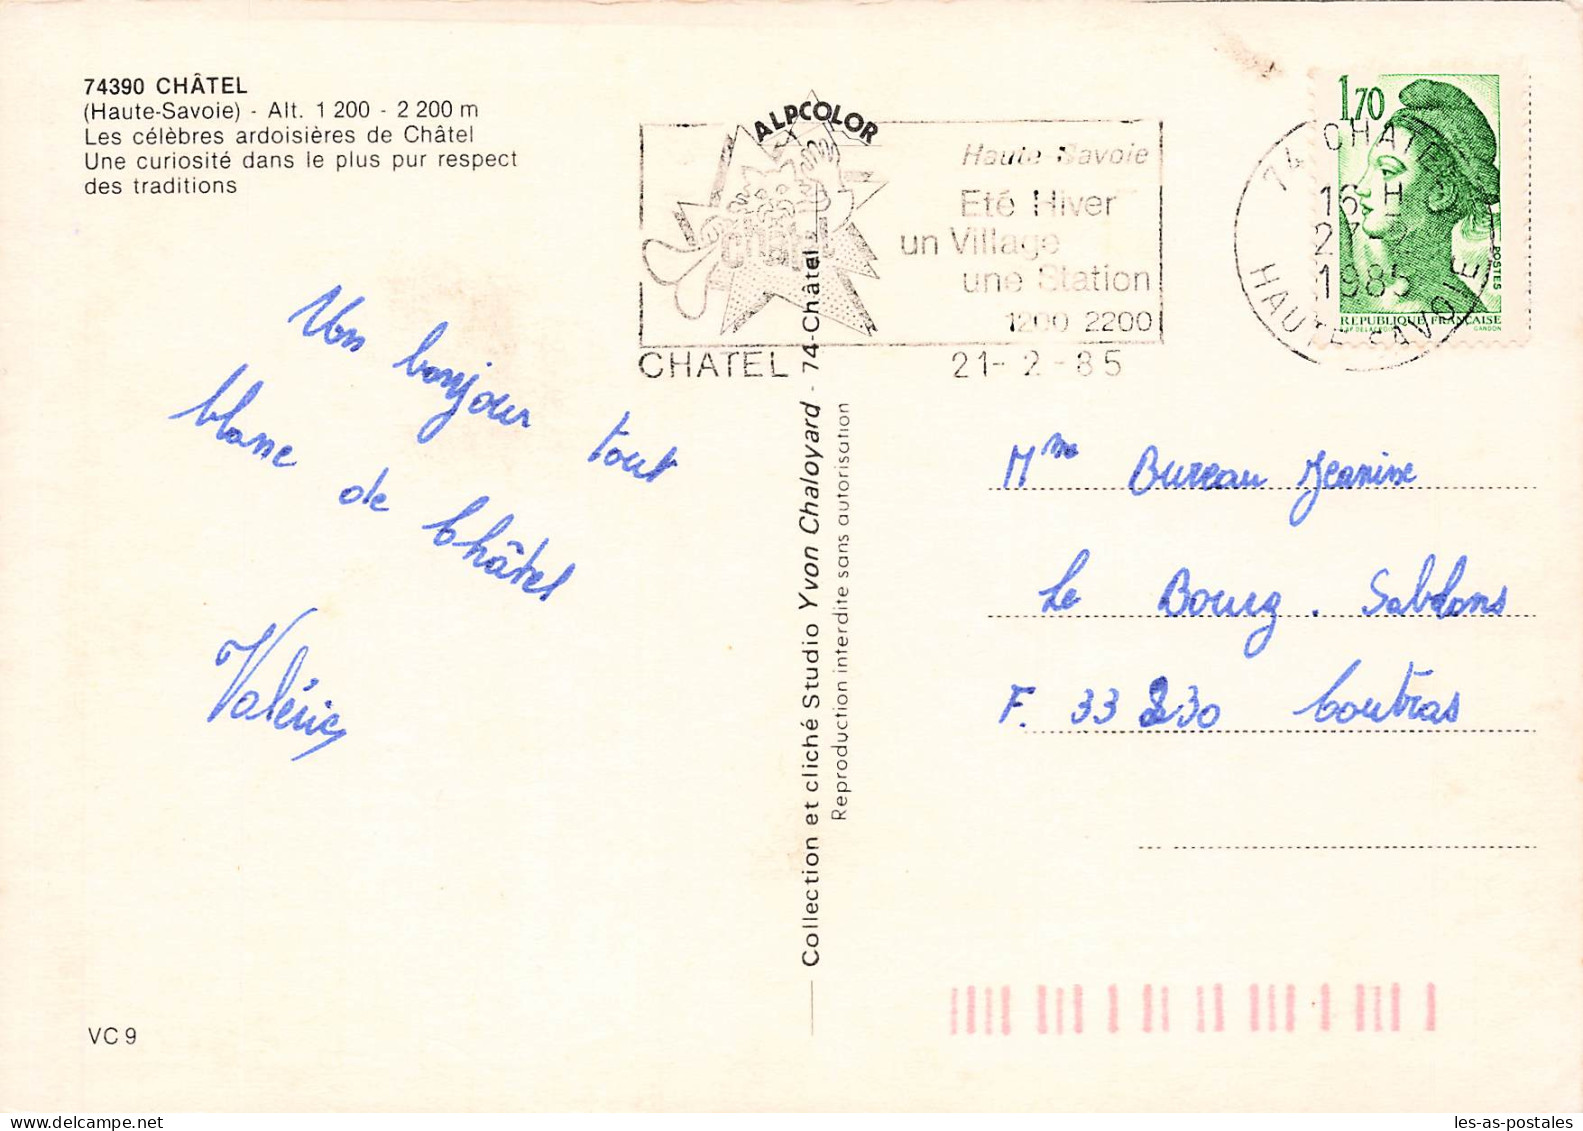 74390 CHÂTEL
(Haute-Savoie) - Alt. 1 200 - 2 200 m
Les célèbres ardoisières de Châtel
Une curiosité dans le plus pur respect
des traditions
ALPCOLOR
Haute Savoie
Eté Hiver
un Village
une Station
1200 2200
CHATEL
21-2-85
74 CHATEL
16 H
1985
HAUTE-SAVOIE
1,70
POSTES
REPUBLIQUE FRANÇAISE
GANDON
Un bonjour tout
blanc de Châtel
Valérie
Mme Bureau Jeanine
Le Bourg. Sablons
F. 33 230 Coutras
Collection et cliché Studio Yvon Chaloyard - 74-Châtel
Reproduction interdite sans autorisation
VC 9
les-as-postales